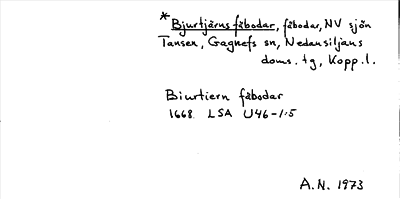 * Bjurtjärns fäbodar, fäbodar, NV sjön
Tansen, Gagnefs sn, Nedansiljans
doms. tg, Kopp. l.
Biurtiern fäbodar
1668 LSA U46-1:5
A.N. 1973